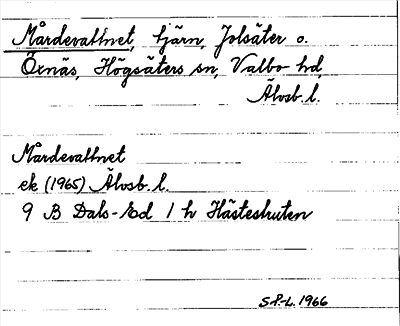 Mårdevattnet, tjärn, Jolsäter o.
Öxnäs, Högsäters sn, Valbo hd,
Älvsb. l.
Mårdevattnet
ek (1965) Älvsb. l.
9 B Dals-Ed 1 h Hästeshuten
S P.-L. 1966